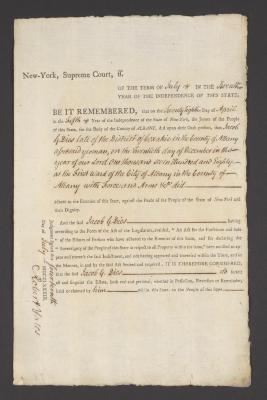 New-York, Supreme Court, ss.
OF THE TERM OF July in IN THE Seventh
YEAR OF THE INDEPENDENCE OF THIS STATE.
BE IT REMEMBERED, that on the Twenty Eighth Day of April
in the fifth Year of the Independence of the State of New-York, the Jurors of the People
of this State, for the Body of the County of ALBANY, did upon their Oath present, that Jacob
G Dies late of the District of in the County of Albany
aforesaid yeoman, on the Twentieth day of December in the
year of our Lord one thousand seven hundred and Eighty
at the first ward of the City of Albany in the County of
Albany with Force and Arms &c did
adhere to the Enemies of this State, against the Peace of the People of the State of New-York and
their Dignity.
And the said Jacob G Dies having
according to the Form of the Act of the Legislature, entitled, "An Act for the Forfeiture and Sale
"of the Estates of Persons who have adhered to the Enemies of this State, and for declaring the
"Sovereignty of the People of this State in respect to all Property within the same," been notified to appear
and traverse the said Indictment, and not having appeared and traversed within the Time, and in
the Manner, in and by the said Act limited and required; IT IS THEREFORE CONSIDERED,
that the said Jacob G. Dies do forfeit
all and singular the Estate, both real and personal, whether in Possession, Reversion or Remainder,
held or claimed by him in this State, to the People of this State.
Judgment signed this fourteenth
Day of July MDCCLXXXIII.
Robert Yates